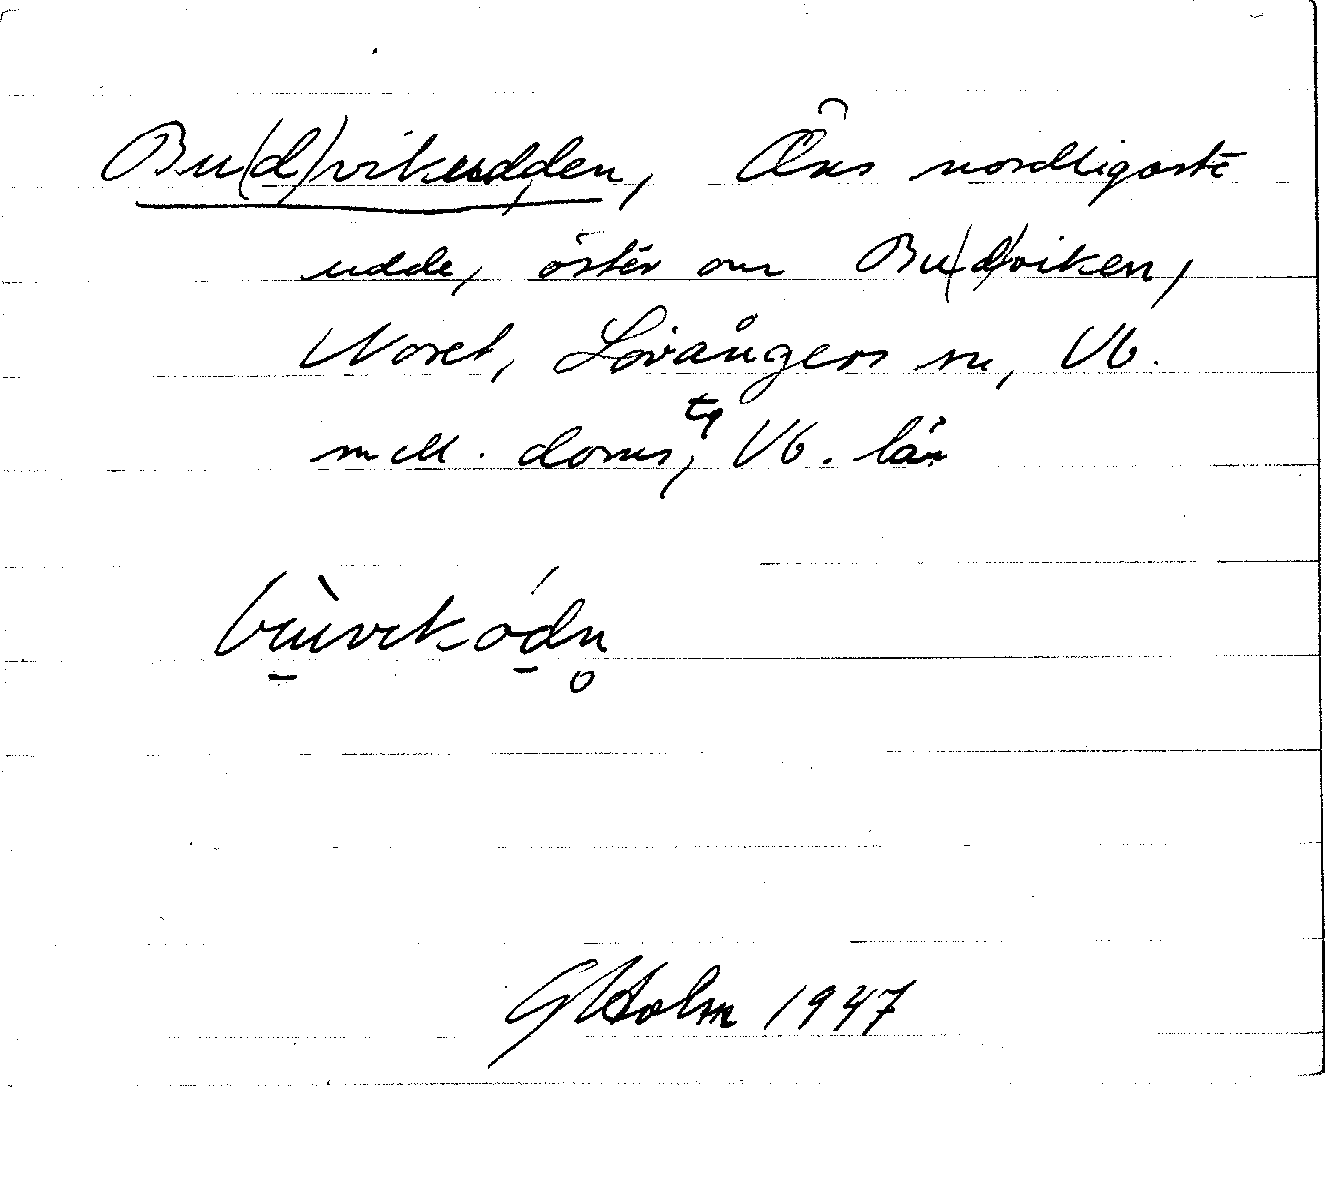 Bu(d)vikudden, Öns nordligaste
udde, öster om Bu(d)viken,
Noret, Lövångers sn, Vb.
mell. doms, tg Vb. län
GHolm 1947